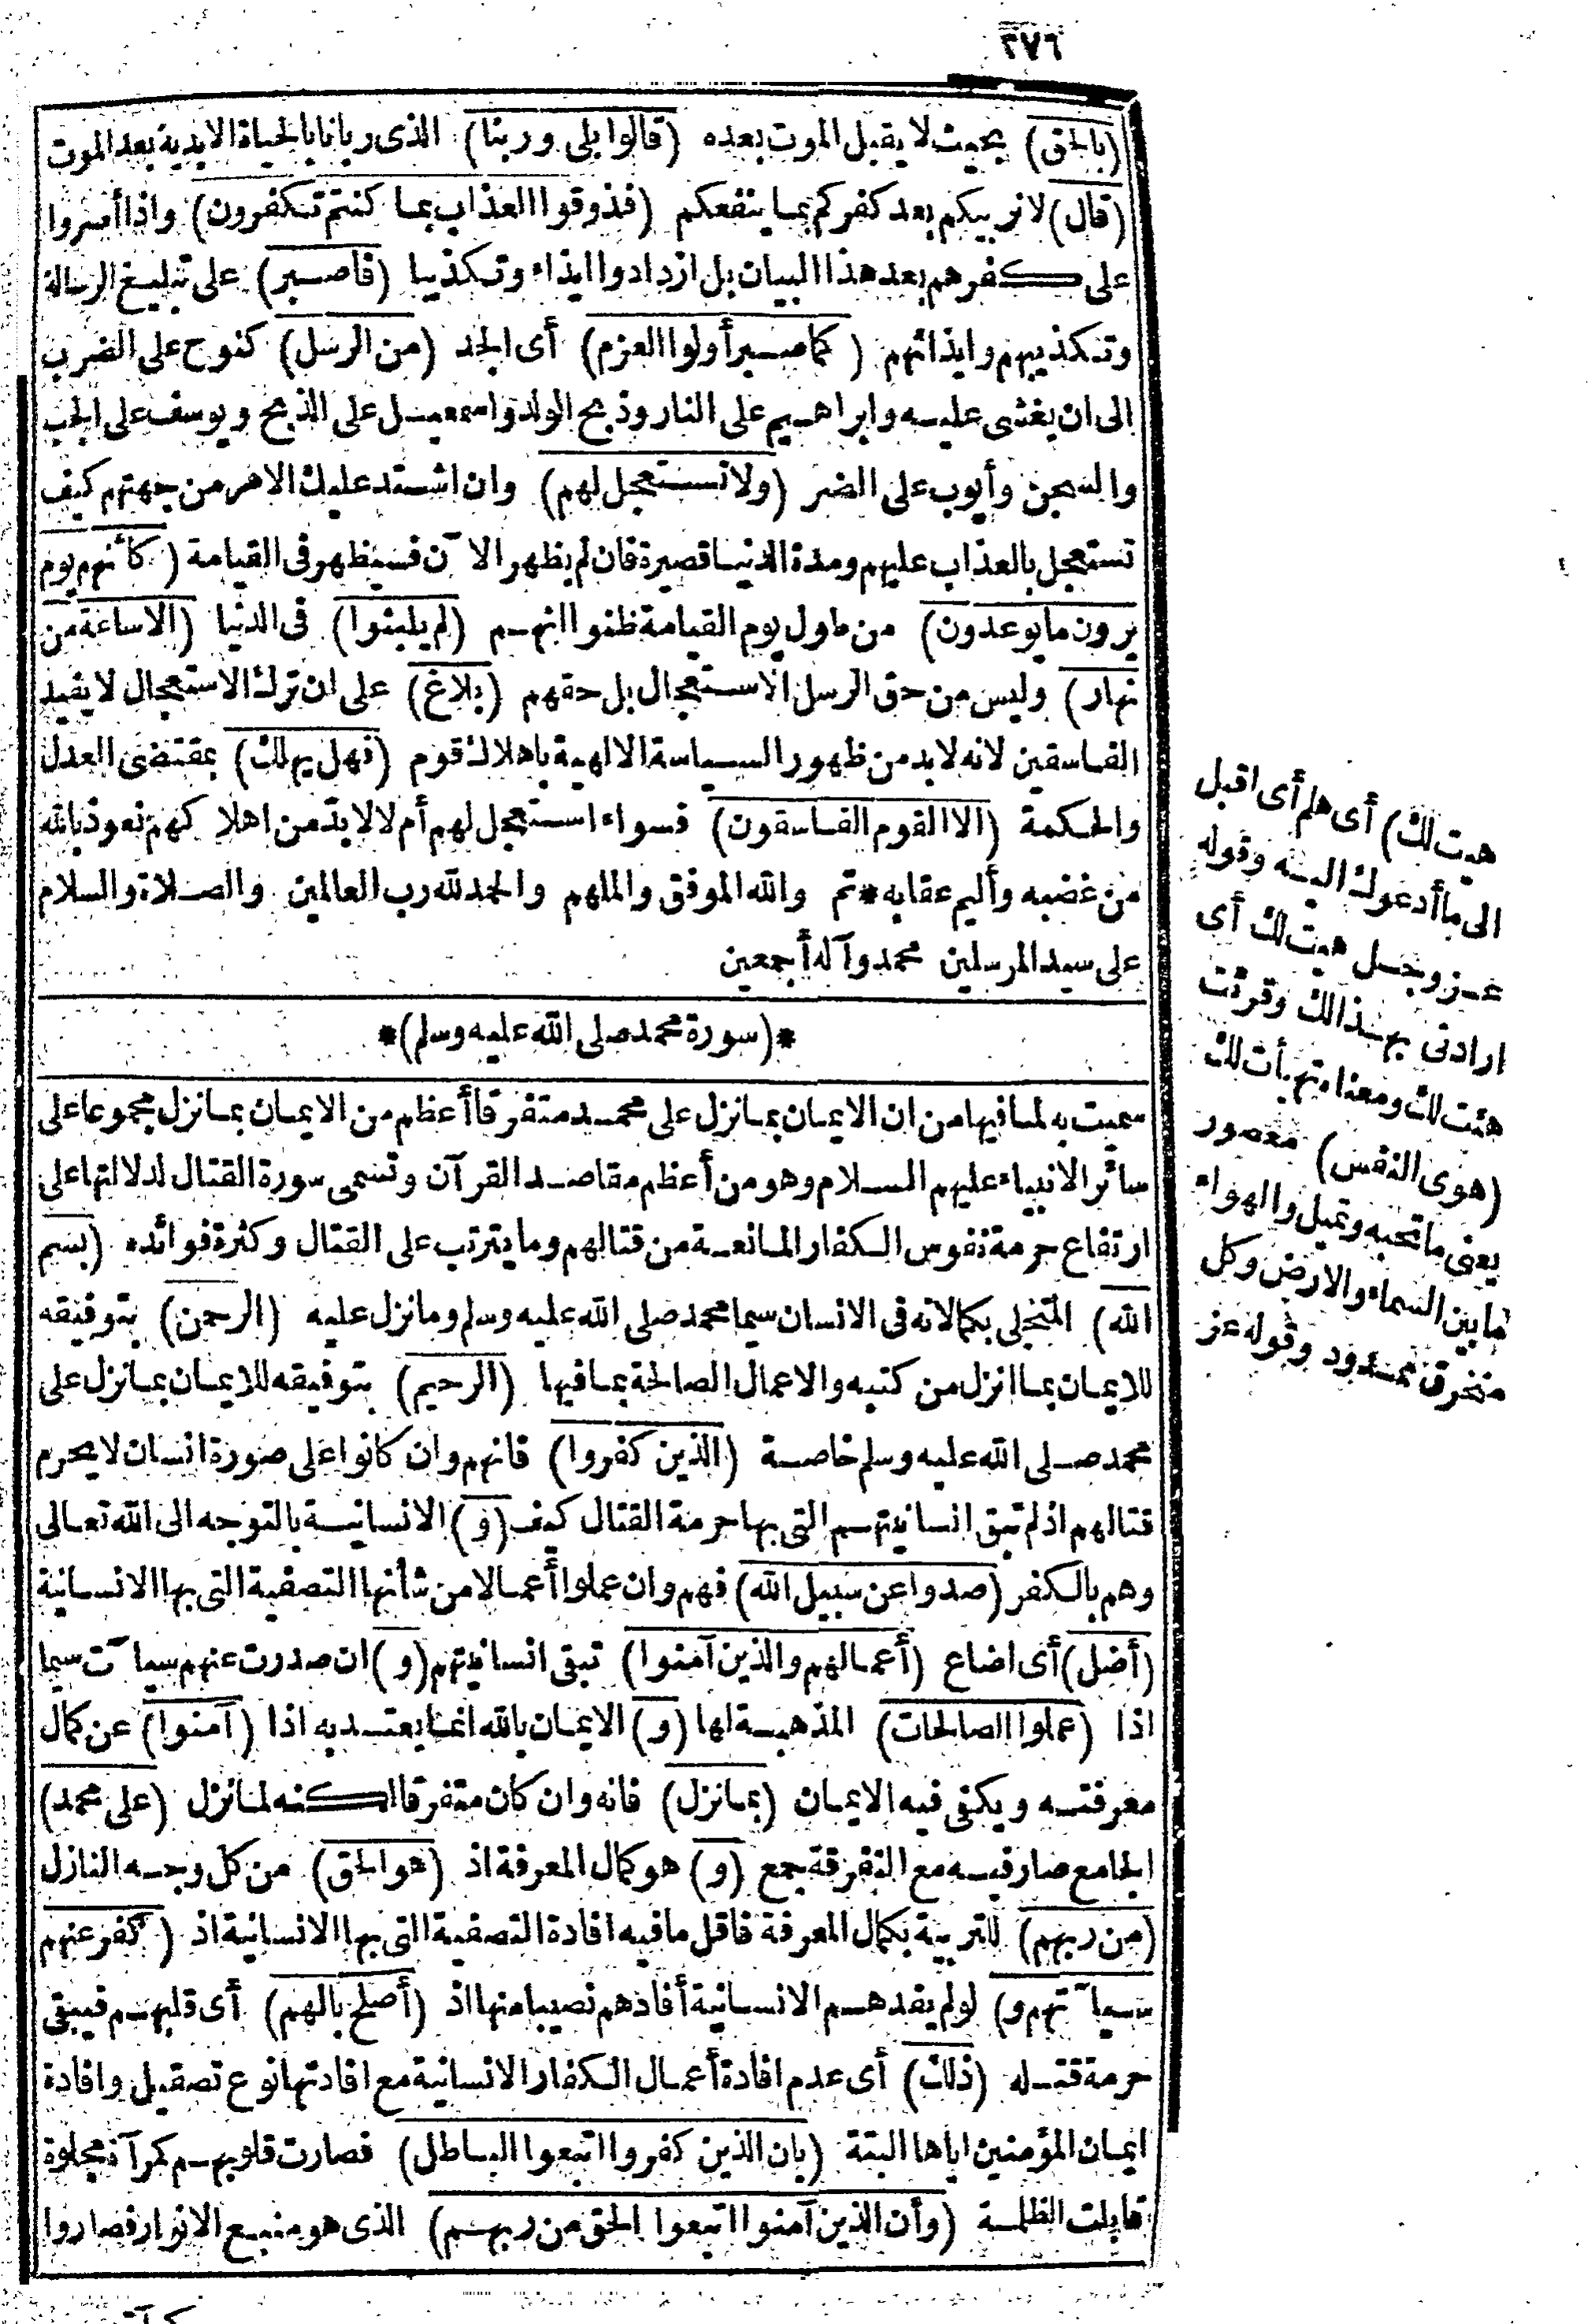 ٢٧٦
(بالحق) بحيث لا يقبل الموت بعده (قالوا بلى وربنا) الذى ربانا بالحياة الابدية بعد الموت
(قال) لا نربيكم بعد كفركم بما ينفعكم (فذوقوا العذاب بما كنتم تكفرون) واذا أصروا
على كفرهم بعد هذا البيان بل ازدادوا ايذاء وتكذيبا (فاصبر) على تبليغ الرسالة
وتكذيبهم وايذائهم (كما صبر أولوا العزم) أى الجد (من الرسل) كنوح على الضرب
الى ان يغشى عليه وابراهيم على النار وذبح الولد واسمعيل على الذبح ويوسف على الجب
والسجن وأيوب على الضر (ولا تستعجل لهم) وان اشتد عليك الامر من جهتهم كيف
تستعجل بالعذاب عليهم ومدة الدنيا قصيرة فان لم يظهر الآن فسيظهر فى القيامة (كأنهم يوم
يرون ما يوعدون) من طول يوم القيامة ظنوا انهم (لم يلبثوا) فى الدنيا (الا ساعة من
نهار) وليس من حق الرسل الاستعجال بل حقهم (بلاغ) على ان ترك الاستعجال لا يفيد
الفاسقين لانه لا بد من ظهور السياسة الالهية باهلاك قوم (فهل يهلك) بمقتضى العدل
والحكمة (الا القوم الفاسقون) فسواء استعجل لهم أم لا لا بد من اهلاكهم نعوذ بالله
من غضبه وأليم عقابه * تم والله الموفق والملهم والحمد لله رب العالمين والصلاة والسلام
على سيد المرسلين محمد وآله أجمعين
*(سورة محمد صلى الله عليه وسلم)*
سميت به لما فيها من ان الايمان بما نزل على محمد متفرقا أعظم من الايمان بما نزل مجموعا على
سائر الانبياء عليهم السلام وهو من أعظم مقاصد القرآن وتسمى سورة القتال لدلالتها على
ارتفاع حرمة نفوس الكفار المانعة من قتالهم وما يترتب على القتال وكثرة فوائده (بسم
الله) المتجلى بكمالاته فى الانسان سيما محمد صلى الله عليه وسلم وما نزل عليه (الرحمن) بتوفيقه
للايمان بما انزل من كتبه والاعمال الصالحة بما فيها (الرحيم) بتوفيقه للايمان بما نزل على
محمد صلى الله عليه وسلم خاصة (الذين كفروا) فانهم وان كانوا على صورة انسان لا يحرم
قتالهم اذ لم تبق انسانيتهم التى بها حرمة القتال كيف (و) الانسانية بالتوجه الى الله تعالى
وهم بالكفر (صدوا عن سبيل الله) فهم وان عملوا أعمالا من شأنها التصفية التى بها الانسانية
(أضل) أى اضاع (أعمالهم والذين آمنوا) تبقى انسانيتهم (و) ان صدرت عنهم سيآت سيما
اذا (عملوا الصالحات) المذهبة لها (و) الايمان بالله انما يعتد به اذا (آمنوا) عن كمال
معرفته ويكفى فيه الايمان (بما نزل) فانه وان كان متفرقا لكنه لما نزل (على محمد)
الجامع صار فيه مع التفرقة جمع (و) هو كمال المعرفة اذ (هو الحق) من كل وجه النازل
(من ربهم) للتربية بكمال المعرفة فاقل ما فيه افادة التصفية التى بها الانسانية اذ (كفر عنهم
سيآتهم و) لو لم يفدهم الانسانية أفادهم نصيبا منها اذ (أصلح بالهم) أى قلبهم فيبقى
حرمة قتله (ذلك) أى عدم افادة أعمال الكفار الانسانية مع افادتها نوع تصقيل وافادة
ايمان المؤمنين اياها البتة (بان الذين كفروا اتبعوا الباطل) فصارت قلوبهم كمرآة مجلوة
قابلت الظلمة (وأن الذين آمنوا اتبعوا الحق من ربهم) الذى هو منبع الانوار فصاروا
هيت لك) أى هلم أى اقبل
الى ما أدعوك اليه وقوله
عز وجل هيت لك أى
ارادتى بهذا لك وقرئت
هئت لك ومعناه تهيأت لك
(هوى النفس) مقصور
يعنى ما تحبه وتميل والهواء
ما بين السماء والارض وكل
منخرق ممدود وقوله عز